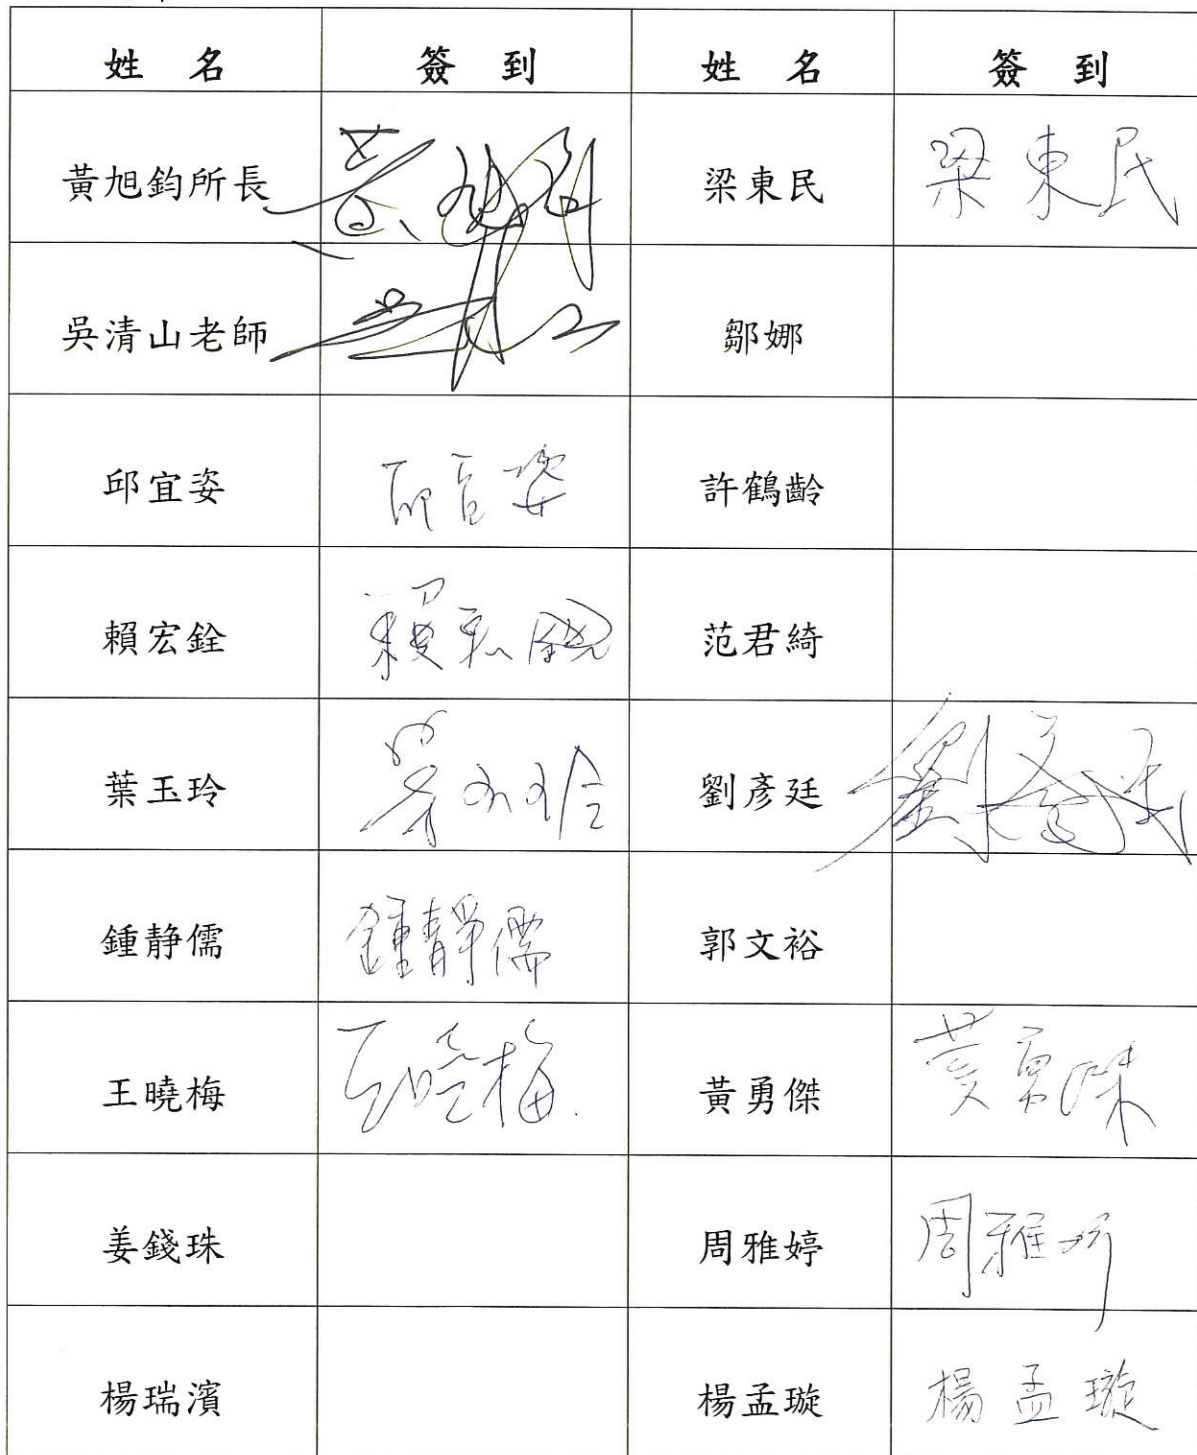 姓 名 簽 到 姓 名 簽 到
黃旭鈞所長 黃旭鈞 梁東民 梁東民
吳清山老師 鄒娜
邱宜姿 邱宜姿 許鶴齡
賴宏銓 賴宏銓 范君綺
葉玉玲 葉玉玲 劉彥廷 劉彥廷
鍾静儒 鍾靜儒 郭文裕
王曉梅 王曉梅 黃勇傑 黃勇傑
姜錢珠 周雅婷 周雅婷
楊瑞濱 楊孟璇 楊孟璇